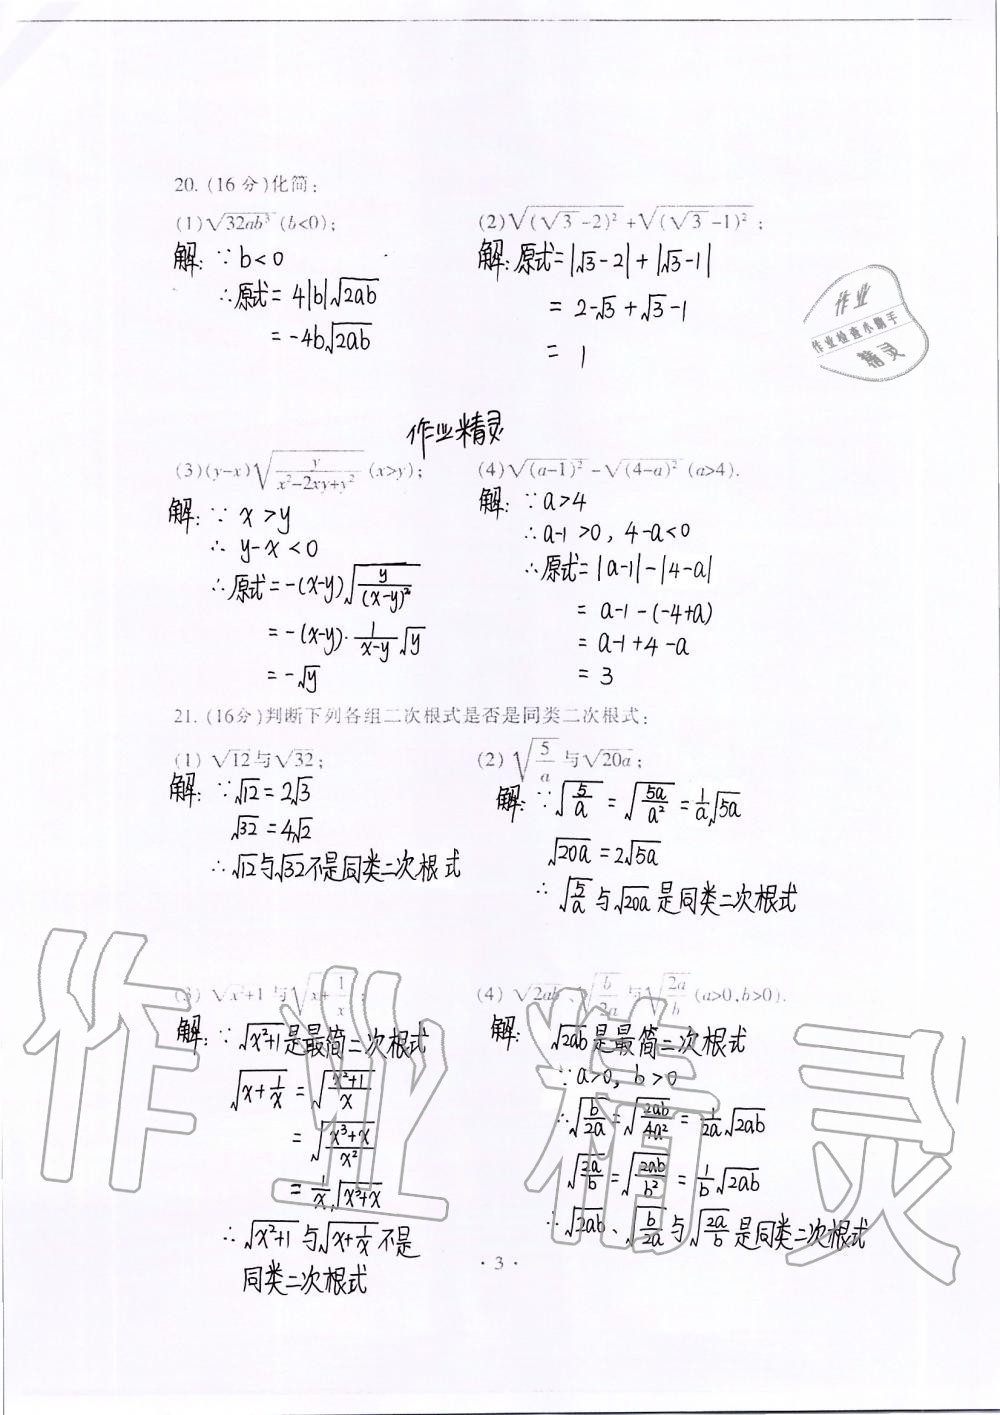 20. (16 分)化简:
(1)√32ab³ (b<0);
解: ∵ b<0
∴原式= 4|b|√2ab
= -4b√2ab
(2)√(√3-2)² +√(√3-1)² ;
解:原式=|√3-2|+|√3-1|
= 2-√3+√3-1
= 1
作业
作业检查小助手
精灵
作业精灵
(3)(y-x)√y/(x²-2xy+y²) (x>y);
解: ∵ x>y
∴ y-x<0
∴原式=-(x-y)√y/(x-y)²
=-(x-y)·1/(x-y)√y
=-√y
(4)√(a-1)² -√(4-a)² (a>4).
解: ∵a>4
∴a-1>0, 4-a<0
∴原式=|a-1|-|4-a|
= a-1-(-4+a)
= a-1+4-a
= 3
21. (16分)判断下列各组二次根式是否是同类二次根式:
(1) √12与√32;
解: ∵√12=2√3
√32=4√2
∴√12与√32不是同类二次根式
(2) √5/a 与√20a;
解: ∵√5/a = √5a/a² = 1/a√5a
√20a=2√5a
∴ √5/a 与√20a 是同类二次根式
(3) √x²+1 与√x+1/x ;
解: ∵ √x²+1是最简二次根式
√x+1/x = √(x²+1)/x
= √(x³+x)/x²
= 1/x√x³+x
∴ √x²+1 与√x+1/x 不是
同类二次根式
(4) √2ab 、√b/2a 与√2a/b (a>0,b>0).
解: √2ab是最简二次根式
∵a>0, b>0
∴√b/2a=√2ab/4a² = 1/2a√2ab
√2a/b=√2ab/b² = 1/b√2ab
∴√2ab、√b/2a与√2a/b是同类二次根式
作业精灵
· 3 ·